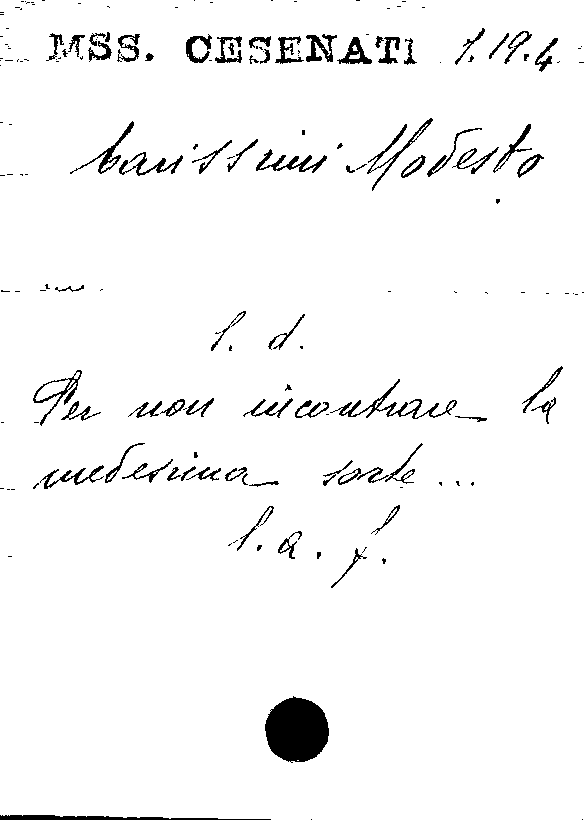 MSS. CESENATI 1.19.4
Carissimi Modesto
s. d.
Per non incontrare la
medesima sorte...
l. a. f.